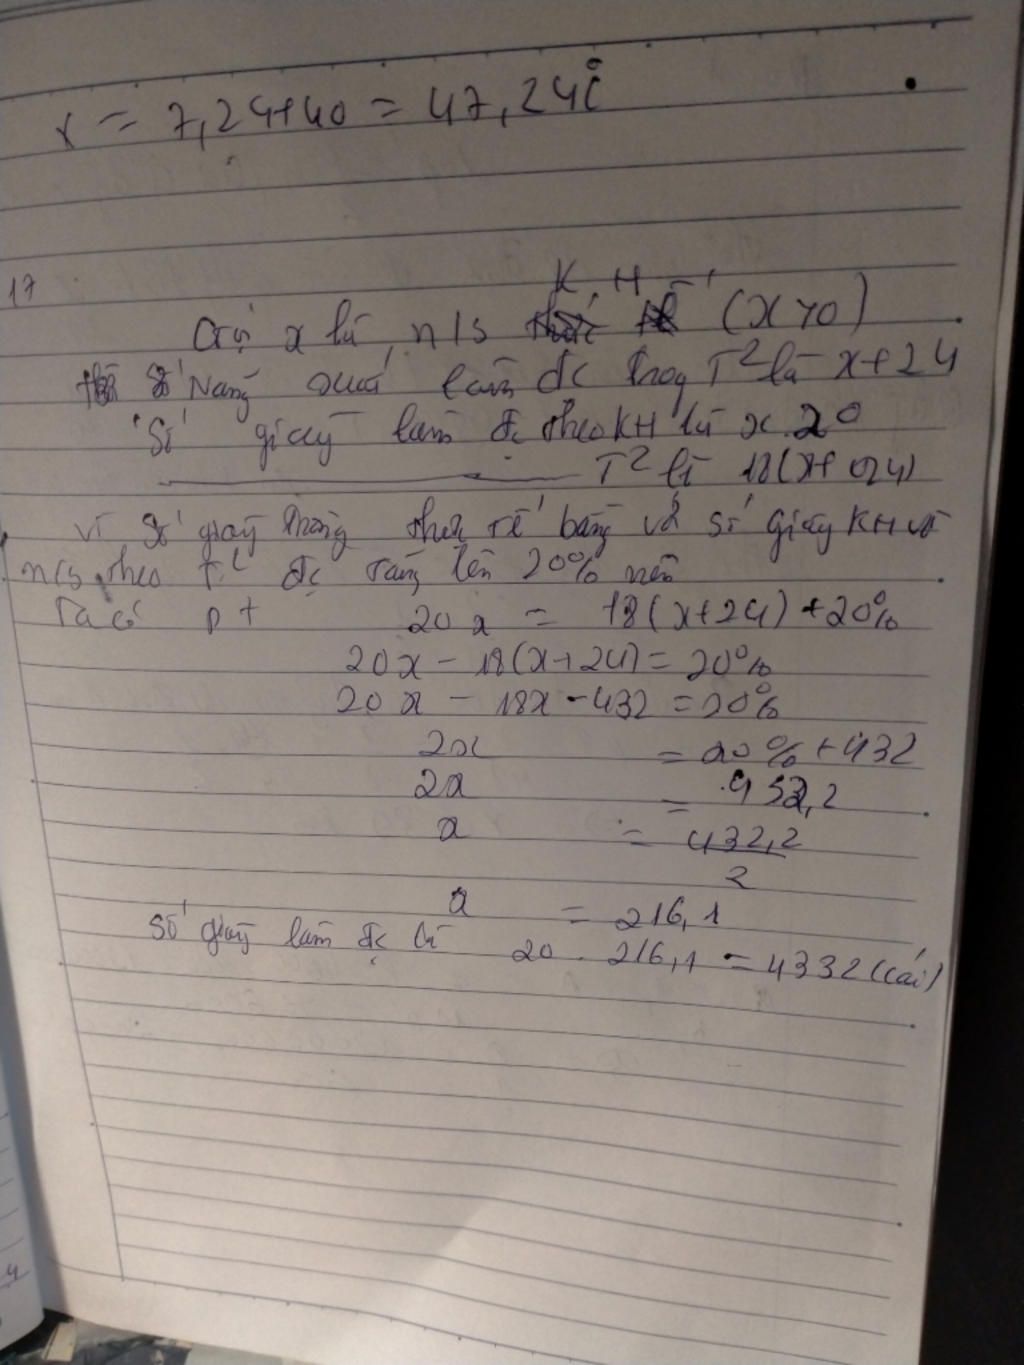 x = 7,24+40 = 47,24°C
17
K.H
Gọi x là n/s (x>0)
Năng xuất làm đc trong T² là x+24
Số giày làm đc theo KH là x.20
T² là 18(x+24)
vì số giày trong thực tế bằng với số giày KH và
n/s theo T² đc tăng lên 20% nên
Ta có pt 20x = 18(x+24) + 20%
20x - 18(x+24) = 20%
20x - 18x - 432 = 20%
2x = 20% + 432
2x = 432,2
x = 432,2
2
x = 216,1
Số giày làm đc là 20 . 216,1 = 4332 (cái)